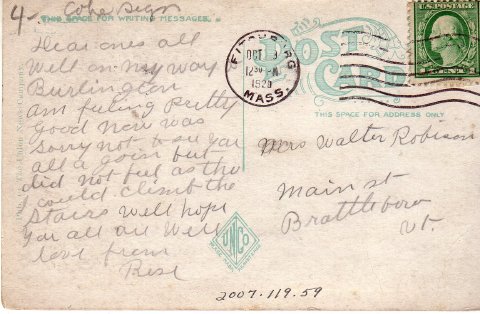 4
Coke Sign
THIS SPACE FOR WRITING MESSAGES.
Dear ones all
Well on my way
Burlington
am feeling pretty
good now was
sorry not to see you
all a goin but
did not feel as tho
I could climb the
stairs well hope
you all are well
love from
Rose
FITCHBURG
OCT
12 30 PM
1920
MASS.
POST
CARD
THIS SPACE FOR ADDRESS ONLY
U.S. POSTAGE
Mrs Walter Robinson
Main st
Brattleboro
Vt.
UNCo
2007.119.59